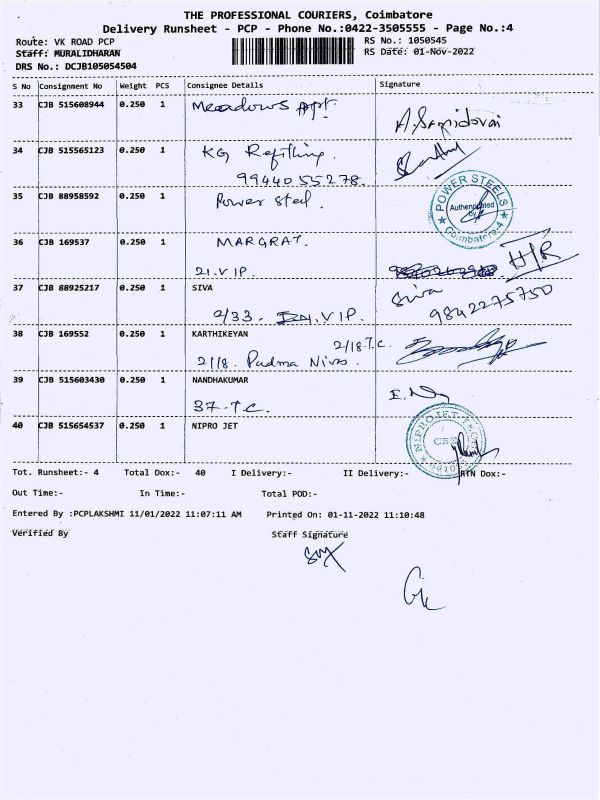 THE PROFESSIONAL COURIERS, Coimbatore
Delivery Runsheet - PCP - Phone No.:0422-3505555 - Page No.:4
Route: VK ROAD PCP RS No.: 1050545
Staff: MURALIDHARAN RS Date: 01-Nov-2022
DRS No.: DCJB105054504
S No Consignment No Weight PCS Consignee Details Signature
33 CJB 515608944 0.250 1 Meadows Apt.
34 CJB 515565123 0.250 1 KG
99440 55278.
35 CJB 88958592 0.250 1 Power steel.
POWER STEELS
Authenticated
by
Coimbatore-4
36 CJB 169537 0.250 1 MARGRAT.
21. VIP. H/R
37 CJB 88925217 0.250 1 SIVA Siva
2/33. VIP. 9842275750
38 CJB 169552 0.250 1 KARTHIKEYAN 2/18.T.C.
2/18. Padma Nivas
39 CJB 515603430 0.250 1 NANDHAKUMAR
37-T.C.
40 CJB 515654537 0.250 1 NIPRO JET
Tot. Runsheet:- 4 Total Dox:- 40 I Delivery:- II Delivery:- RTN Dox:-
Out Time:- In Time:- Total POD:-
Entered By :PCPLAKSHMI 11/01/2022 11:07:11 AM Printed On: 01-11-2022 11:10:48
Verified By Staff Signature